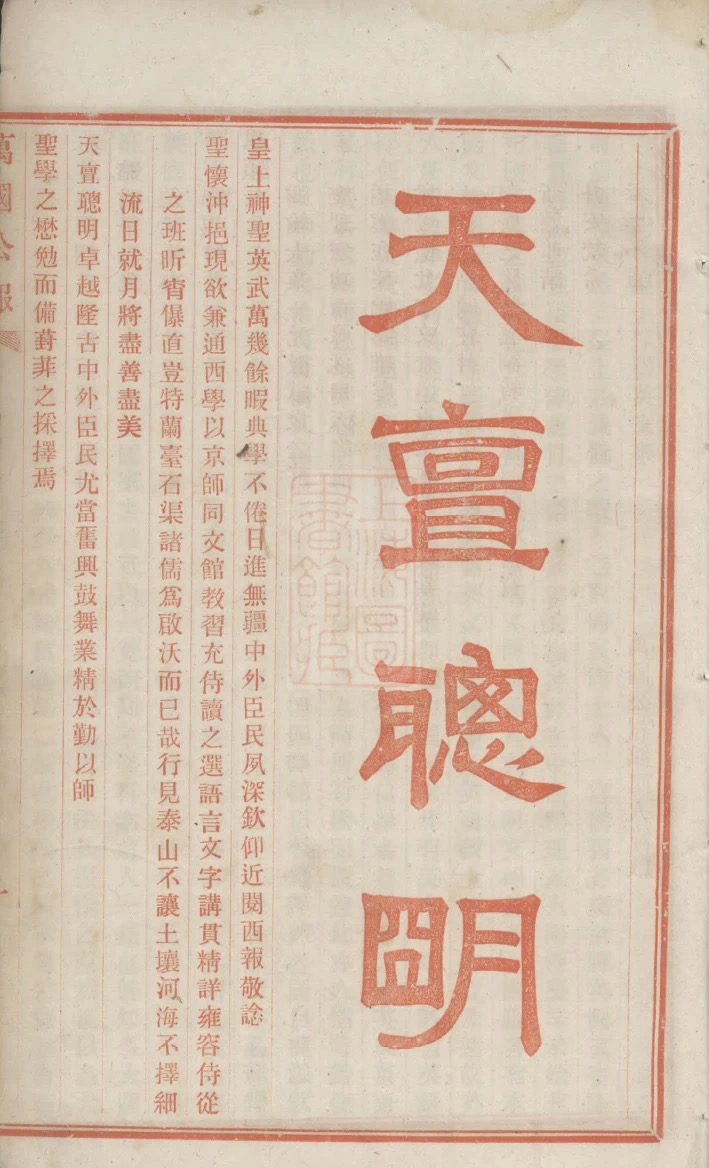 天亶聰明
皇上神聖英武萬幾餘暇典學不倦日進無疆中外臣民夙深欽仰近閱西報敬諗
聖懷沖挹現欲兼通西學以京師同文館教習充侍讀之選語言文字講貫精詳雍容侍從
之班昕宵儤直豈特蘭臺石渠諸儒爲啟沃而已哉行見泰山不讓土壤河海不擇細
流日就月將盡善盡美
天亶聰明卓越隆古中外臣民尤當奮興鼓舞業精於勤以師
聖學之懋勉而備葑菲之採擇焉
萬國公報
一